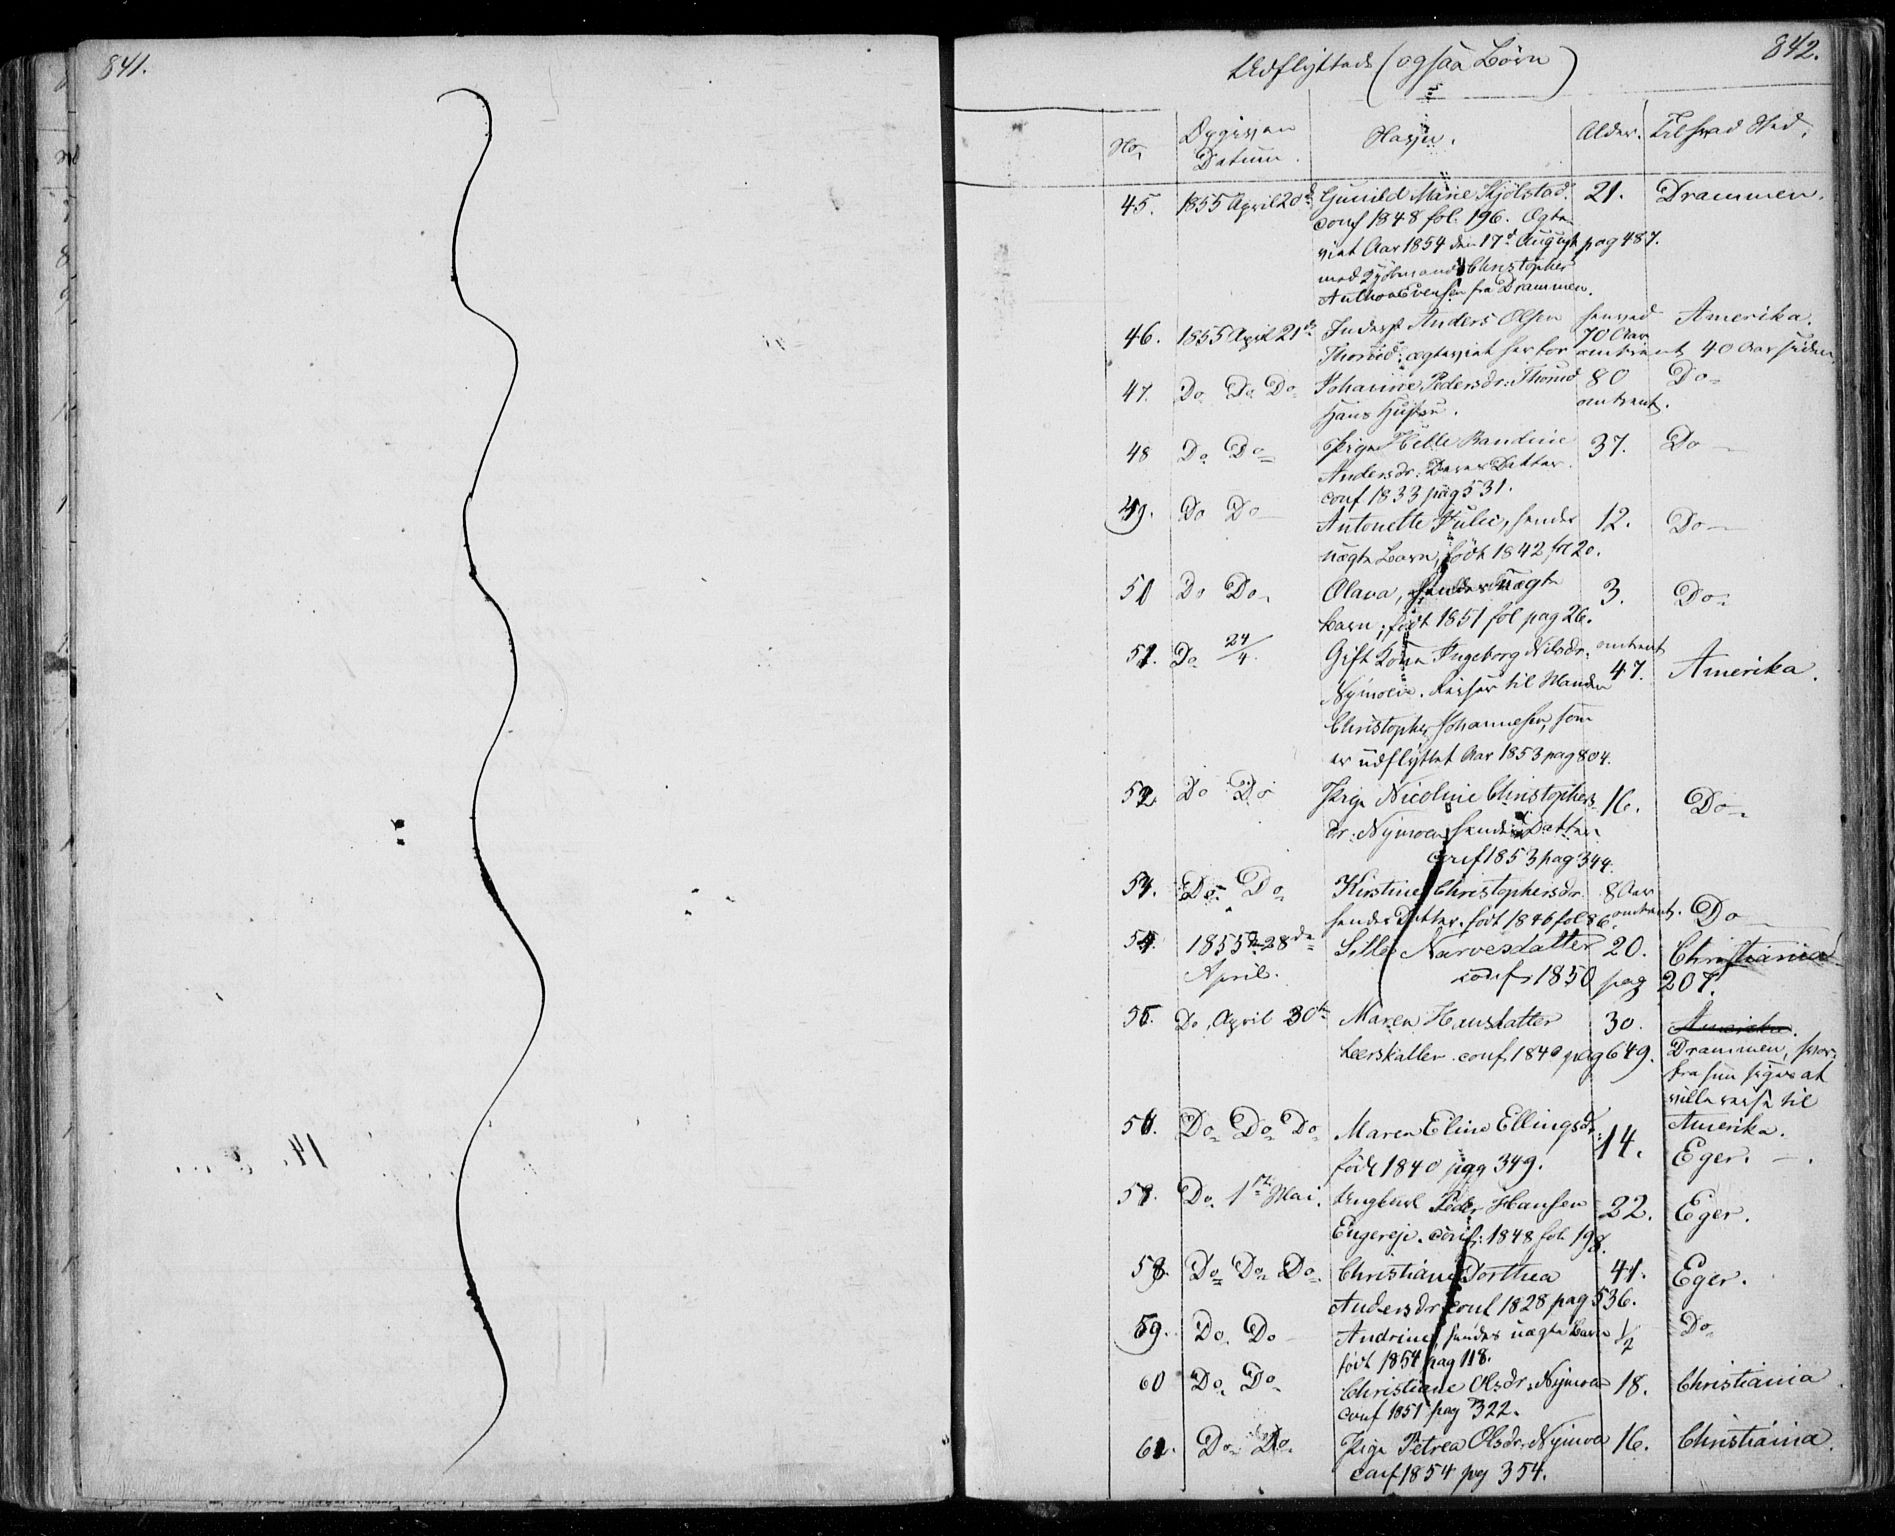 841.
842.
Udflyttede (ogsaa Børn)
No. Opgiven Datum. Navn. Alder. Tilhvad Sted.
45. 1855 April 20de Gunild Marie Kjølstad. 21. Drammen.
conf 1848 fol. 196. Ægte
viet Aar 1854 den 17d August pag 487.
med Kjøbmand Christopher
Anthon Evensen fra Drammen.
46. 1855 April 21de Inderst Anders Olsen henved 70 Aar Amerika.
Thorud: ægteviet her for omtrent 40 Aar siden.
47. Do Do Do Johanne Pedersdr: Thorud 80 Do
Hans Hustru. omtrent.
48 Do Do Pige Helle Randine 37. Do
Andersdr: Deres Datter.
conf 1833 pag 531.
49. Do Do Antonette Julie, hendes 12. Do
uægte Barn, født 1842 fol 20.
50 Do Do Olava, hendes uægte 3. Do
Barn; født 1851 fol pag 26.
51. Do 24/4. Gift Kone Ingeborg Nilsdr. omtrent 47. Amerika.
Nymoen. Reiser til Manden
Christopher Johannesen, som
er udflyttet Aar 1853 pag 804.
52 Do Do Pige Nicoline Christophers- 16. Do
dr: Nymoen hendes Datter
conf 1853 pag 344.
53. Do Do Kirstine Christophersdr. 8 Aar
hendes Datter. født 1846 fol 86. omtrent. Do
54. 1855 28de Sille Narvesdatter 20. Christiania
April. conf 1850 pag 207.
55. Do April 30te Maren Hansdatter 30. Amerika.
Leerskallen. conf. 1840 pag 649. Drammen, hvor-
fra hun siges at
ville reise til
Amerika.
56. Do Do Do Maren Eline Ellingsdr: 14.
født 1840 pag 349. Eger.
57. Do 1ste Mai. Ungkarl Peder Hansen 22. Eger.
Engereje. conf: 1848 fol. 198.
58. Do Do Do Christiane Dorthea 41. Eger.
Andersdr conf 1828 pag 536.
59. Do Do Andrine, hendes uægte Barn 1/2 Do
født 1854 pag 118.
60 Do Do Christiane Olsdr: Nymoen 18. Christiania
conf 1851 pag 322.
61. Do Do Pige Petrea Olsdr: Nymoen 16. Christiania.
conf 1854 pag 354.